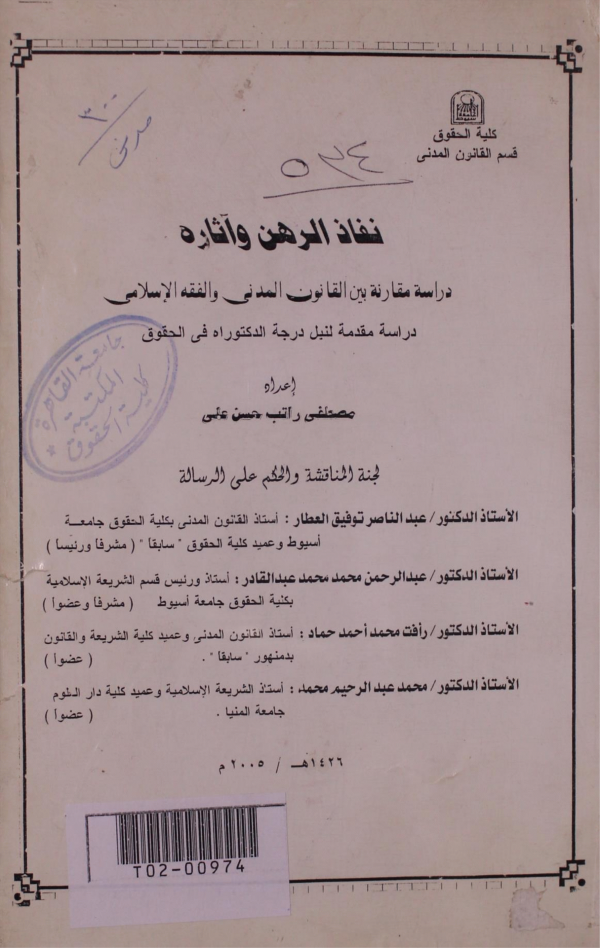 كلية الحقوق
قسم القانون المدنى
٣٠٠
مدنى
٥٣٤
نفاذ الرهن وآثاره
دراسة مقارنة بين القانون المدنى والفقه الإسلامى
دراسة مقدمة لنيل درجة الدكتوراه فى الحقوق
جامعة القاهرة
المكتبة
كلية الحقوق
إعداد
مصطفى راتب حسن على
لجنة المناقشة والحكم على الرسالة
الأستاذ الدكتور/ عبد الناصر توفيق العطار : أستاذ القانون المدنى بكلية الحقوق جامعة
أسيوط وعميد كلية الحقوق " سابقاً " ( مشرفاً ورئيساً )
الأستاذ الدكتور/ عبدالرحمن محمد محمد عبدالقادر: أستاذ ورئيس قسم الشريعة الإسلامية
بكلية الحقوق جامعة أسيوط ( مشرفاً وعضواً )
الأستاذ الدكتور/ رأفت محمد أحمد حماد : أستاذ القانون المدنى وعميد كلية الشريعة والقانون
بدمنهور " سابقاً " . ( عضواً )
الأستاذ الدكتور/ محمد عبد الرحيم محمد : أستاذ الشريعة الإسلامية وعميد كلية دار العلوم
جامعة المنيا . ( عضواً )
١٤٢٦هـ / ٢٠٠٥ م
T02-00974